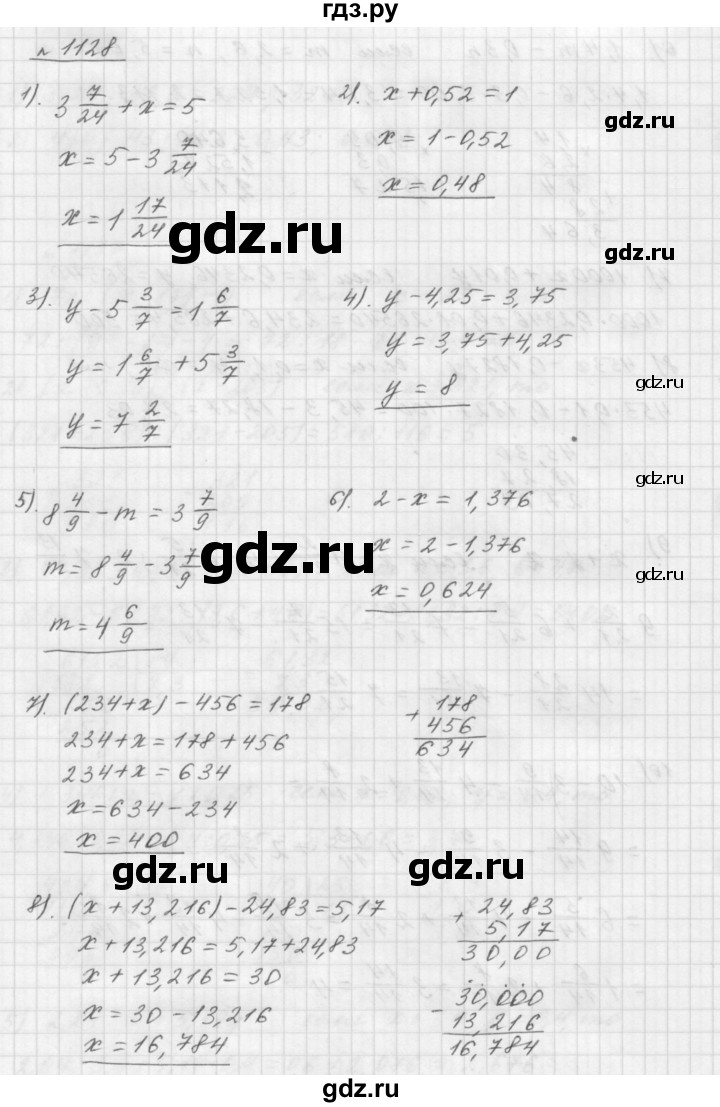 гдз.ру
№ 1128
1). 3 7/24 + x = 5
x = 5 - 3 7/24
x = 1 17/24
2). x + 0,52 = 1
x = 1 - 0,52
x = 0,48
gdz.ru
gdz.ru
gdz.ru
3). y - 5 3/7 = 1 6/7
y = 1 6/7 + 5 3/7
y = 7 2/7
4). y - 4,25 = 3,75
y = 3,75 + 4,25
y = 8
gdz.ru
gdz.ru
5). 8 4/9 - m = 3 7/9
m = 8 4/9 - 3 7/9
m = 4 6/9
6). 2 - x = 1,376
x = 2 - 1,376
x = 0,624
gdz.ru
gdz.ru
7). (234 + x) - 456 = 178
234 + x = 178 + 456
234 + x = 634
x = 634 - 234
x = 400
+ 178
456
634
gdz.ru
gdz.ru
8). (x + 13,216) - 24,83 = 5,17
x + 13,216 = 5,17 + 24,83
x + 13,216 = 30
x = 30 - 13,216
x = 16,784
+ 24,83
5,17
30,00
- 30,000
13,216
16,784
gdz.ru